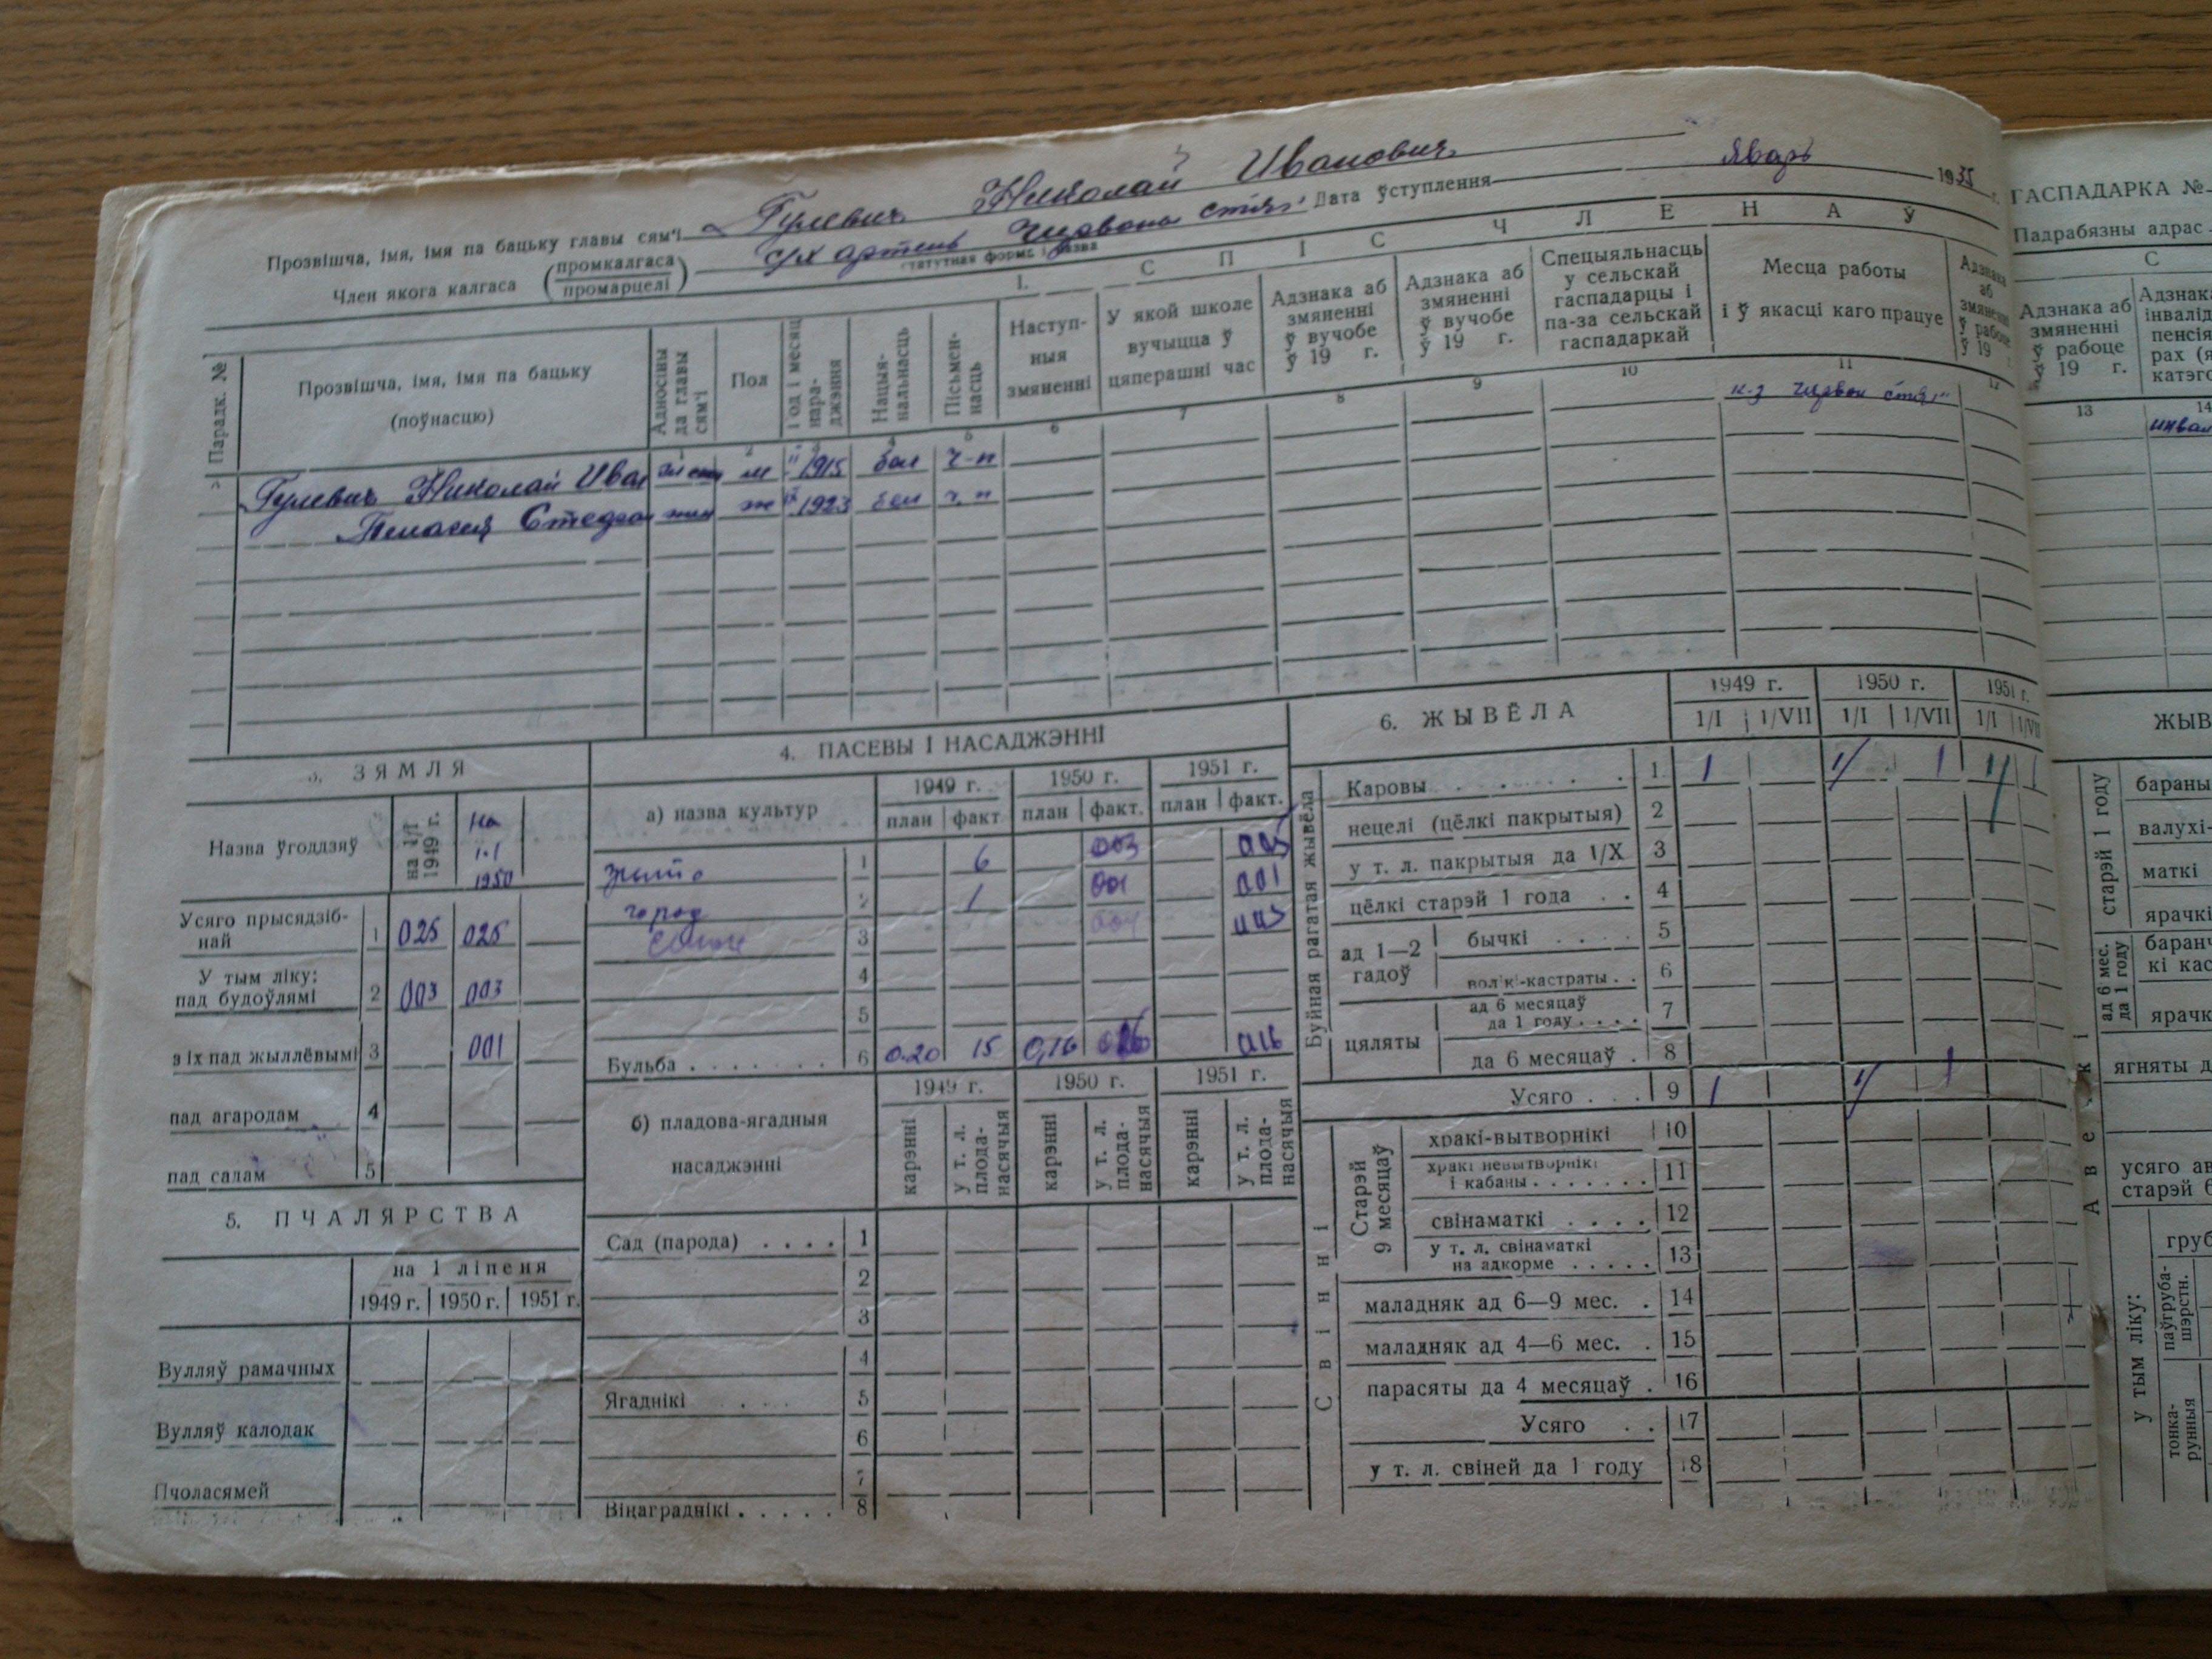 Прозвішча, імя, імя па бацьку главы сям'і Гулевич Николай Иванович
Член якога калгаса (промкалгаса промарцелі) с/х артель Чырвоны статутная форма і назва Дата ўступлення 1935 г.
1. СПІС ЧЛЕНАЎ
Парадк. №
Прозвішча, імя, імя па бацьку (поўнасцю)
Адносіны да главы сям'і
Пол
Год і месяц нараджэння
Нацыянальнасць
Пісьменнасць
Наступныя змяненні
У якой школе вучыцца ў цяперашні час
Адзнака аб змяненні ў вучобе ў 19 г.
Адзнака аб змяненні ў вучобе ў 19 г.
Спецыяльнасць у сельскай гаспадарцы і па-за сельскай гаспадаркай
Месца работы і ў якасці каго працуе
Адзнака аб змяненні ў рабоце ў 19 г.
2 3 4 5 6 7 8 9 10 11 12
Гулевич Николай Иван м 1915 бел ч-п к-з
Степа ж 1923 бел ч.п
3. ЗЯМЛЯ
Назва ўгоддзяў
на 1/I 1949 г.
на 1.1 1950
Усяго прысядзібнай 1 025 025
У тым ліку: пад будоўлямі 2 003 003
з іх пад жыллёвымі 3 001
пад агародам 4
пад садам 5
5. ПЧАЛЯРСТВА
на 1 ліпеня
1949 г. 1950 г. 1951 г.
Вулляў рамачных
Вулляў калодак
Пчоласямей
4. ПАСЕВЫ І НАСАДЖЭННІ
а) назва культур
1949 г. 1950 г. 1951 г.
план факт. план факт. план факт.
жыто 1 6 003 005
город 2 1 001 001
3
4
5
Бульба 6 0.20 15 0,16 016 016
б) пладова-ягадныя насаджэнні
1949 г. 1950 г. 1951 г.
карэнні у т. л. пладанасячыя карэнні у т. л. пладанасячыя карэнні у т. л. пладанасячыя
Сад (парода) 1
2
3
4
Ягаднікі 5
6
7
Вінаграднікі 8
6. ЖЫВЁЛА
1949 г. 1950 г. 1951 г.
1/I 1/VII 1/I 1/VII 1/I 1/VII
Буйная рагатая жывёла
Каровы 1 1 1 1 1 1
нецелі (цёлкі пакрытыя) 2
у т. л. пакрытыя да 1/X 3
цёлкі старэй 1 года 4
ад 1—2 гадоў
бычкі 5
волікі-кастраты 6
цяляты
ад 6 месяцаў да 1 году 7
да 6 месяцаў 8
Усяго 9 1 1 1
Свінні
Старэй 9 месяцаў
хракі-вытворнікі 10
хракі невытворнікі і кабаны 11
свінаматкі 12
у т. л. свінаматкі на адкорме 13
маладняк ад 6—9 мес. 14
маладняк ад 4—6 мес. 15
парасяты да 4 месяцаў 16
Усяго 17
у т. л. свіней да 1 году 18
ГАСПАДАРКА №
Падрабязны адрас
С
Адзнака аб змяненні ў рабоце ў 19 г.
13 14
старэй 1 году
бараны
маткі
ад 6 мес. да 1 году
Авечкі
ягняты
у тым ліку: